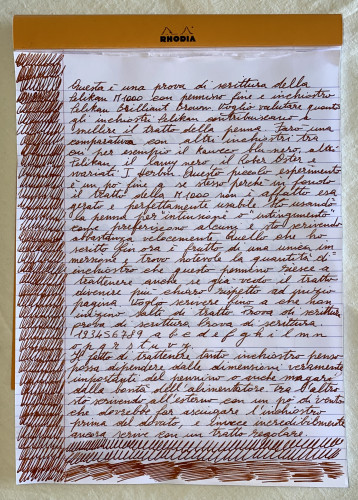 RHODIA
Questa è una prova di scrittura della
Pelikan M1000 con pennino fine e inchiostro
Pelikan Brilliant Brown. Voglio valutare quanto
gli inchiostri Pelikan contribuiscano a
snellire il tratto della penna. Farò una
comparativa con altri inchiostri tra
cui per esempio il bianco nero, altri
Pelikan, il Lamy nero, il Rober Oster e
svariati J. Herbin. Questo piccolo esperimento
è un po' fine a se stesso perché in fondo
il tratto della M1000 non è affatto esa
gerato e perfettamente usabile. Sto usando
la penna per "intinsione" o "intingimento"
come preferiscono alcuni e sto scrivendo
abbastanza velocemente. Quello che ho
scritto fin ora è frutto di una unica im
mersione e trovo notevole la quantità di
inchiostro che questo pennino riesce a
trattenere anche se già vedo il tratto
divenire più chiaro rispetto ad inizio
pagina. Voglio scrivere fino a che non
inizino salti di tratto. Prova di scrittura
prova di scrittura prova di scrittura.
123456789 a b c d e f g h i l m n
o p q r s t u v z
Il fatto di trattenere tanto inchiostro penso
possa dipendere dalle dimensioni veramente
importanti del pennino e anche magari
dalla bontà dell'alimentatore. Tra l'altro
sto scrivendo all'esterno con un po' di vento
che dovrebbe far asciugare l'inchiostro
prima del dovuto, e invece incredibilmente
ancora scrive con un tratto regolare.